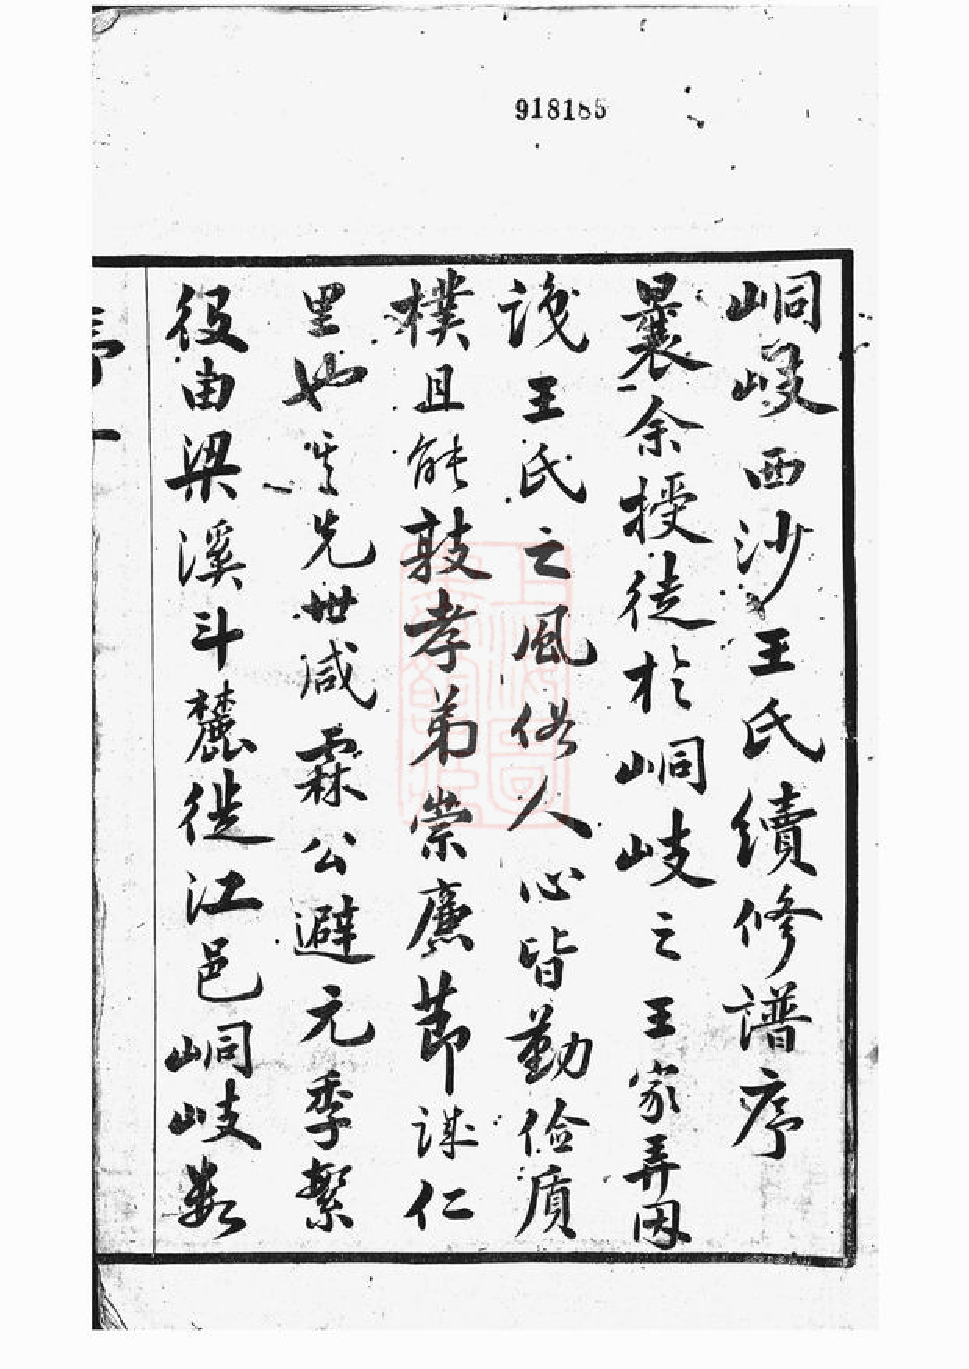 918185
峒岐西沙王氏續修譜序
曩余授徒於峒岐之王家弄因
識王氏之風俗人心皆勤儉質
樸且能敦孝弟崇廉節誠仁
里也其先世咸霖公避元季繁
役由梁溪斗麓徙江邑峒岐數
序一